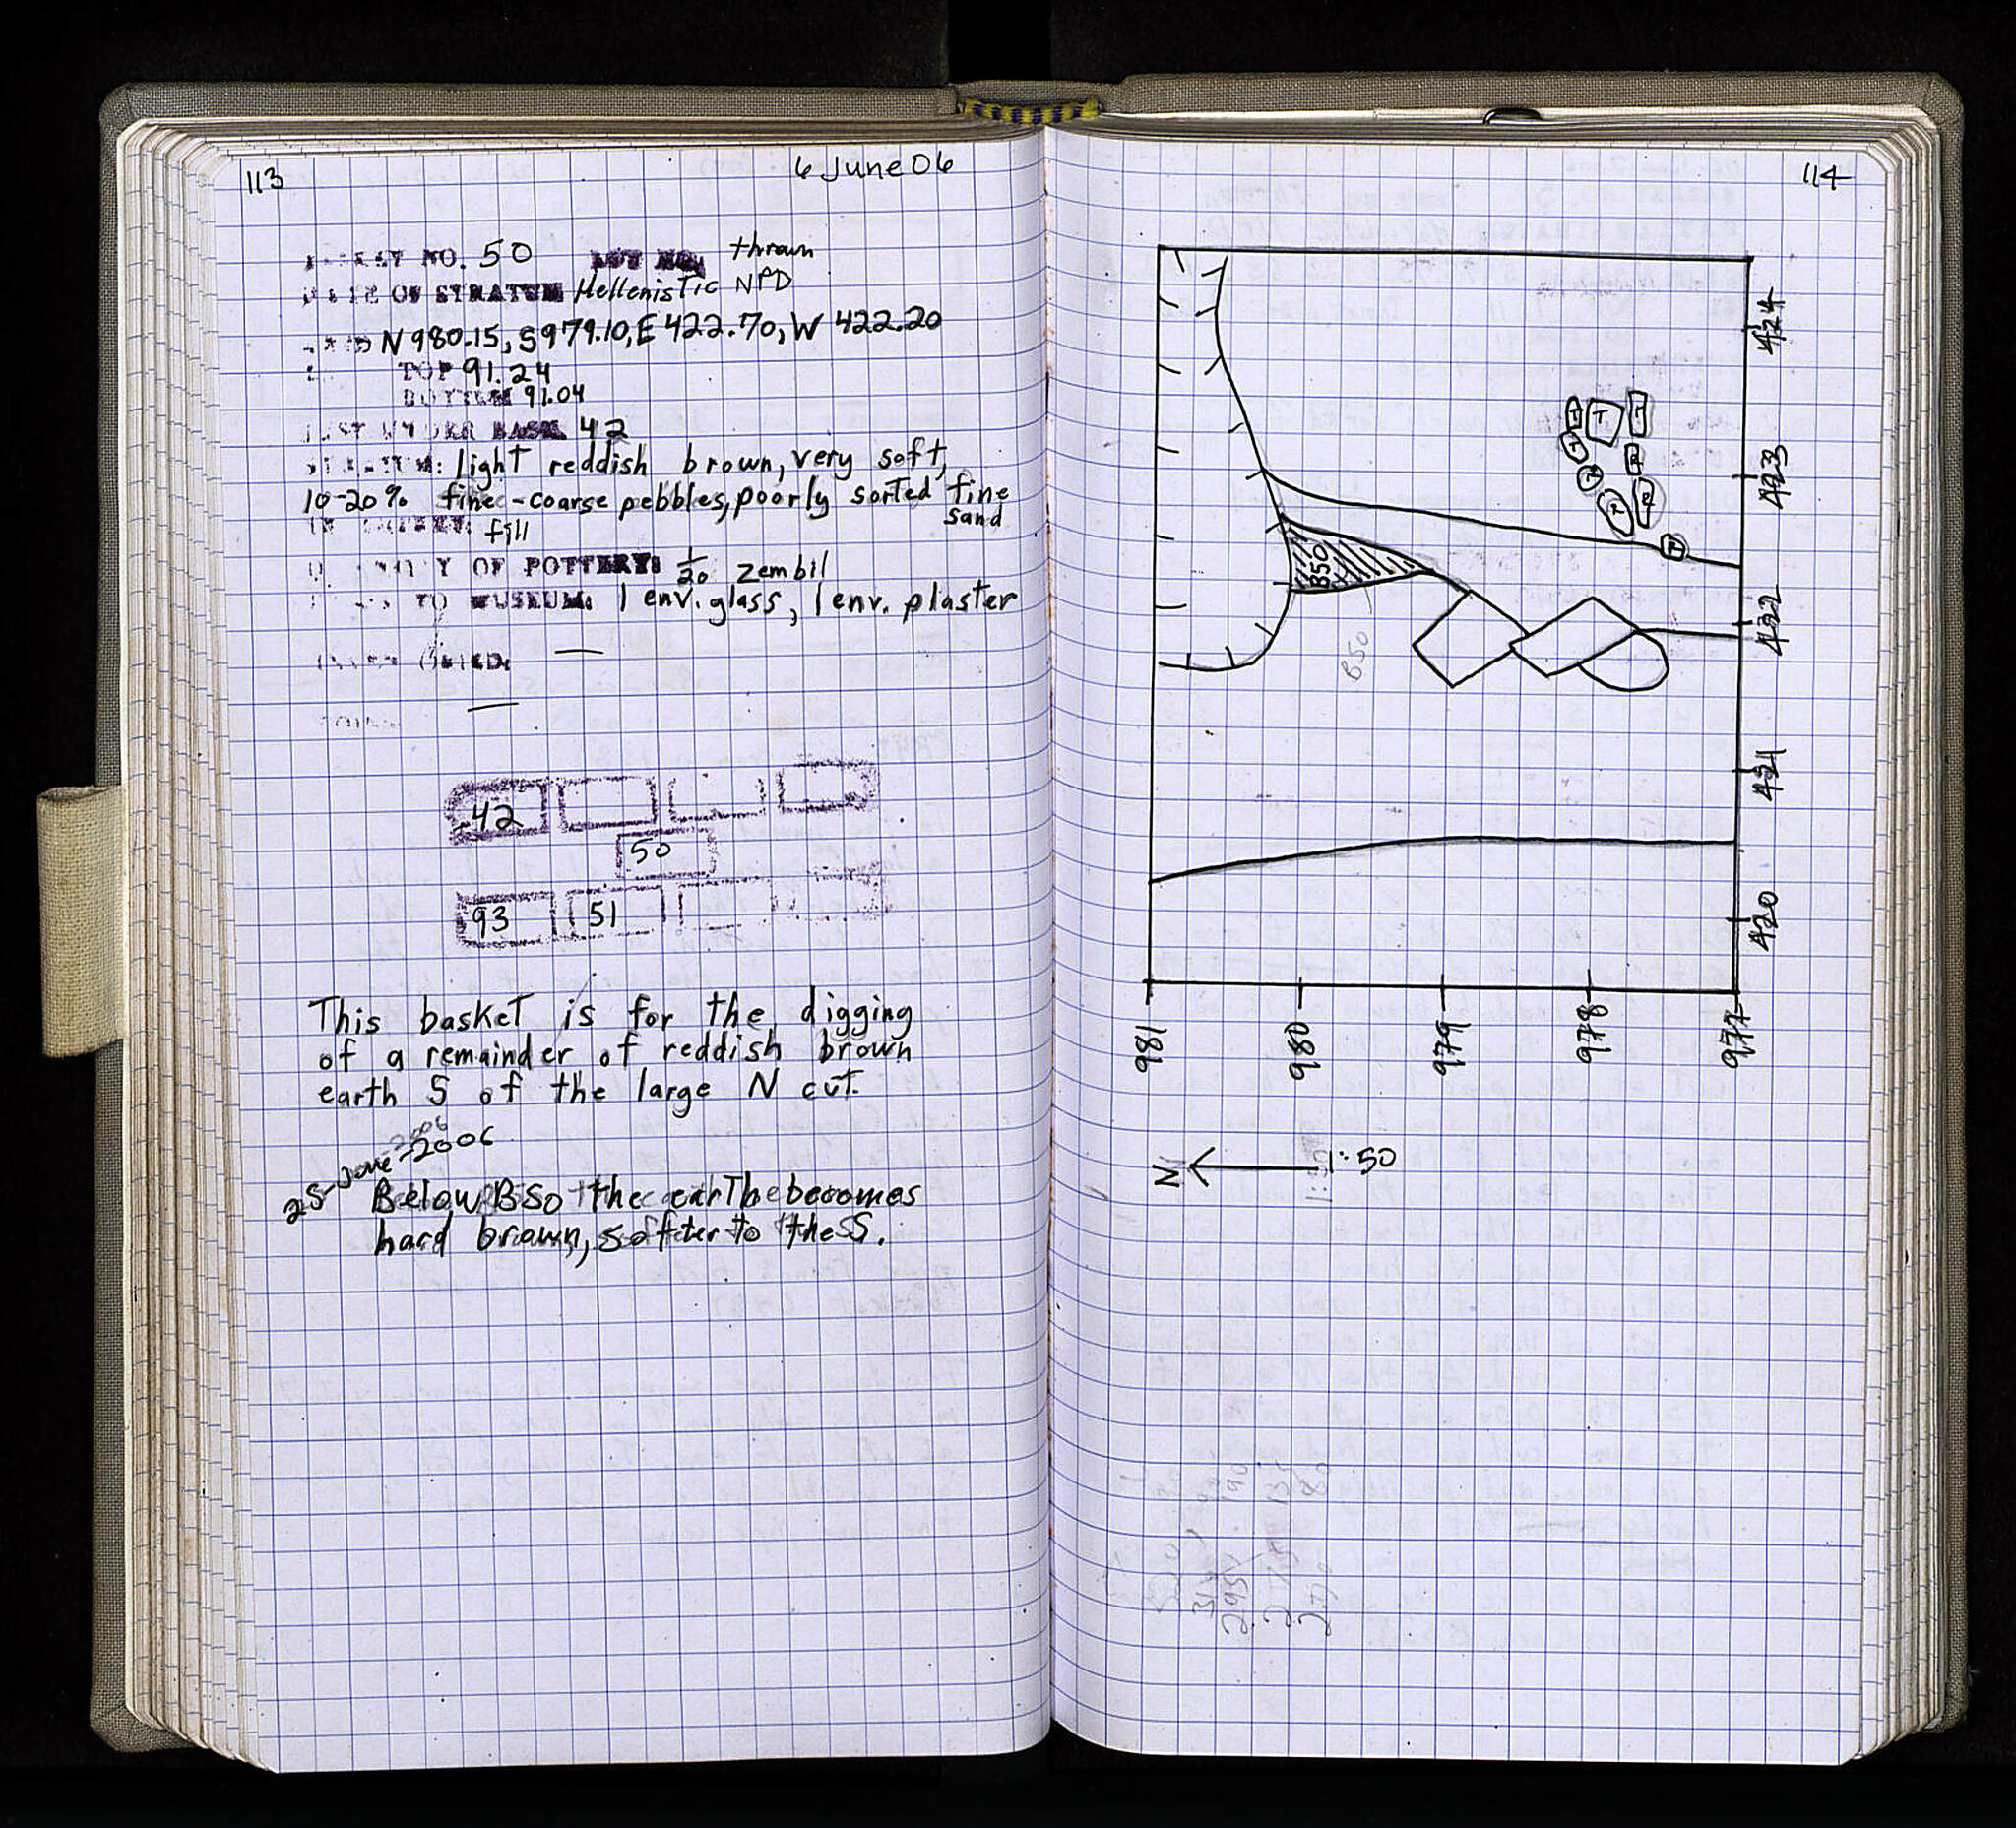 113
6 June 06
BASKET NO. 50 LOT NO. thrown
DATE OF STRATUM Hellenistic NPD
GRID N 980.15, S 979.10, E 422.70, W 422.20
TOP 91.24
BOTTOM 91.04
JUST UNDER BASK. 42
STRATUM: light reddish brown, very soft,
10-20% fine-coarse pebbles, poorly sorted fine
sand
fill
QUANTITY OF POTTERY: 1/20 zembil
TO MUSEUM: 1 env. glass, 1 env. plaster
—
COINS —
42
50
93 51
This basket is for the digging
of a remainder of reddish brown
earth S of the large N cut.
25-June-2006
Below B50 the earth becomes
hard brown, softer to the S.
114
424
423
422
421
420
T T T
R
R
R
B50
B50
981 980 979 978 977
N 1:50